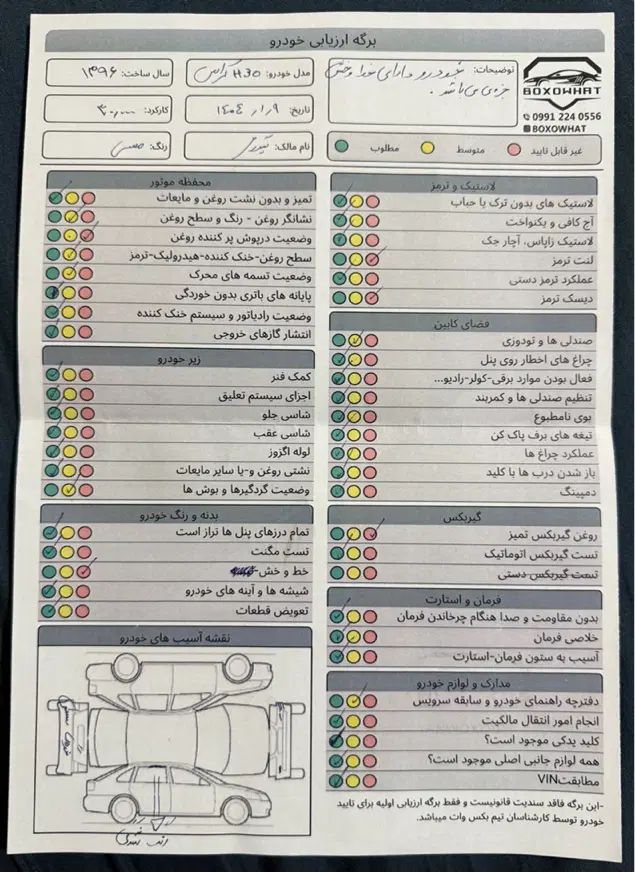 برگه ارزیابی خودرو
توضیحات: خودرو دارای خط و خش
جزئی می باشد.
مدل خودرو: H30 کراس
سال ساخت: ۱۳۹۶
تاریخ: ۱۴۰۴/۱/۹
کارکرد:
نام مالک:
رنگ:
BOXOWHAT
0991 224 0556
BOXOWHAT
غیر قابل تایید
متوسط
مطلوب
لاستیک و ترمز
لاستیک های بدون ترک یا حباب
آج کافی و یکنواخت
لاستیک زاپاس، آچار جک
لنت ترمز
عملکرد ترمز دستی
دیسک ترمز
فضای کابین
صندلی ها و تودوزی
چراغ های اخطار روی پنل
فعال بودن موارد برقی-کولر-رادیو...
تنظیم صندلی ها و کمربند
بوی نامطبوع
تیغه های برف پاک کن
عملکرد چراغ ها
باز شدن درب ها با کلید
دمپینگ
گیربکس
روغن گیربکس تمیز
تست گیربکس اتوماتیک
تست گیربکس دستی
فرمان و استارت
بدون مقاومت و صدا هنگام چرخاندن فرمان
خلاصی فرمان
آسیب به ستون فرمان-استارت
مدارک و لوازم خودرو
دفترچه راهنمای خودرو و سابقه سرویس
انجام امور انتقال مالکیت
کلید یدکی موجود است؟
همه لوازم جانبی اصلی موجود است؟
مطابقت VIN
-این برگه فاقد سندیت قانونیست و فقط برگه ارزیابی اولیه برای تایید
خودرو توسط کارشناسان تیم بکس وات میباشد.
محفظه موتور
تمیز و بدون نشت روغن و مایعات
نشانگر روغن - رنگ و سطح روغن
وضعیت درپوش پر کننده روغن
سطح روغن-خنک کننده-هیدرولیک-ترمز
وضعیت تسمه های محرک
پایانه های باتری بدون خوردگی
وضعیت رادیاتور و سیستم خنک کننده
انتشار گازهای خروجی
زیر خودرو
کمک فنر
اجزای سیستم تعلیق
شاسی جلو
شاسی عقب
لوله اگزوز
نشتی روغن و-یا سایر مایعات
وضعیت گردگیرها و بوش ها
بدنه و رنگ خودرو
تمام درزهای پنل ها تراز است
تست مگنت
خط و خش
شیشه ها و آینه های خودرو
تعویض قطعات
نقشه آسیب های خودرو